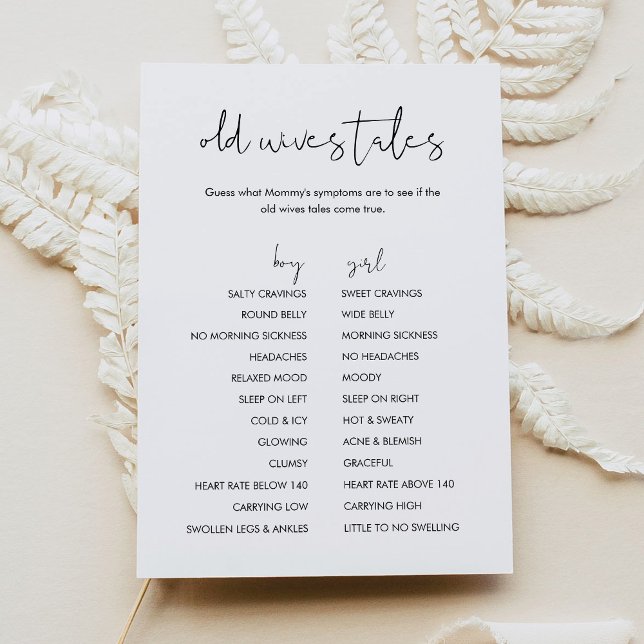 old wives tales
Guess what Mommy's symptoms are to see if the
old wives tales come true.
boy girl
SALTY CRAVINGS SWEET CRAVINGS
ROUND BELLY WIDE BELLY
NO MORNING SICKNESS MORNING SICKNESS
HEADACHES NO HEADACHES
RELAXED MOOD MOODY
SLEEP ON LEFT SLEEP ON RIGHT
COLD & ICY HOT & SWEATY
GLOWING ACNE & BLEMISH
CLUMSY GRACEFUL
HEART RATE BELOW 140 HEART RATE ABOVE 140
CARRYING LOW CARRYING HIGH
SWOLLEN LEGS & ANKLES LITTLE TO NO SWELLING